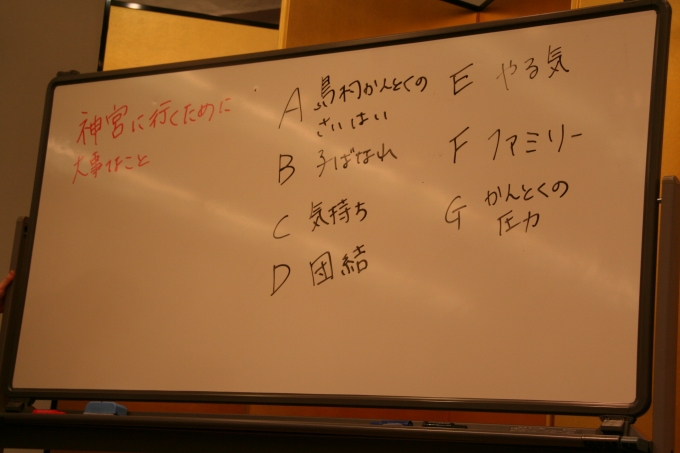 神宮に行くために
大事なこと
A 島村かんとくの
さいはい
B 子ばなれ
C 気持ち
D 団結
E やる気
F ファミリー
G かんとくの
圧力